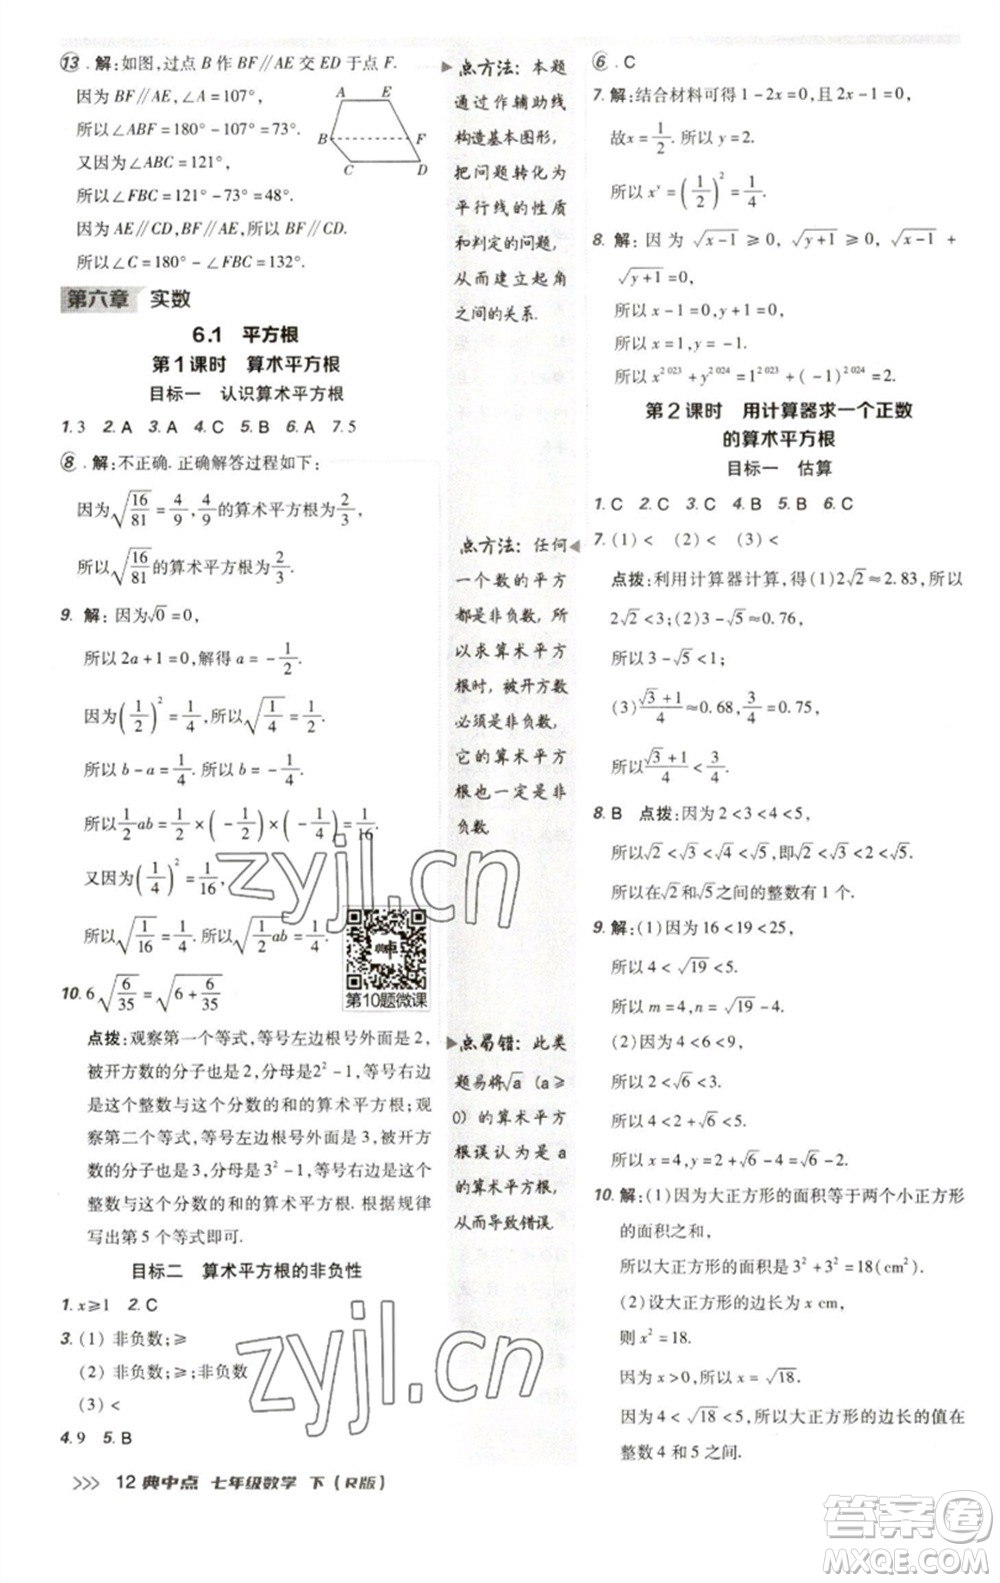 13. 解:如图,过点 B 作 BF∥AE 交 ED 于点 F.
因为 BF∥AE,∠A=107°,
所以∠ABF=180°-107°=73°.
又因为∠ABC=121°,
所以∠FBC=121°-73°=48°.
因为 AE∥CD,BF∥AE,所以 BF∥CD.
所以∠C=180°-∠FBC=132°.
A E
B F
C D
第六章 实数
6.1 平方根
第1课时 算术平方根
目标一 认识算术平方根
1. 3 2. A 3. A 4. C 5. B 6. A 7. 5
8. 解:不正确. 正确解答过程如下:
因为√(16/81)=4/9,4/9的算术平方根为2/3,
所以√(16/81)的算术平方根为2/3.
9. 解:因为√0=0,
所以 2a+1=0,解得 a=-1/2.
因为(1/2)²=1/4,所以√(1/4)=1/2.
所以 b-a=1/4,所以 b=-1/4.
所以1/2ab=1/2×(-1/2)×(-1/4)=1/16.
又因为(1/4)²=1/16,
所以√(1/16)=1/4,所以√(1/2ab)=1/4.
10. 6√(6/35)=√(6+6/35)
第10题微课
点拨:观察第一个等式,等号左边根号外面是2,
被开方数的分子也是2,分母是2²-1,结果
是这个整数与这个分数的和的算术平方根;观
察第二个等式,等号左边根号外面是3,被开方
数的分子也是3,分母是3²-1,结果是这个整
数与这个分数的和的算术平方根. 根据规律
写出第5个等式即可.
目标二 算术平方根的非负性
1. x≥1 2. C
3. (1) 非负数;≥
(2) 非负数;≥;非负数
(3) <
4. 9 5. B
点方法:本题
通过作辅助线
构造基本图形,
把问题转化为
平行线的性质
和判定的问题,
从而建立起角
之间的关系.
点方法:任何
一个数的平方
都是非负数,所
以求算术平方
根时,被开方数
必须是非负数,
它的算术平方
根也一定是非
负数
点易错:此类
题易将√a(a≥
0)的算术平方
根误认为是a
的算术平方根,
从而导致错误.
6. C
7. 解:结合材料可得 1-2x=0,且 2x-1=0,
故x=1/2. 所以 y=2.
所以 xʸ=(1/2)²=1/4.
8. 解:因为√(x-1)≥0,√(y+1)≥0,√(x-1)+
√(y+1)=0.
所以 x-1=0,y+1=0.
所以 x=1,y=-1.
所以 x²⁰²³+y²⁰²⁴=1²⁰²³+(-1)²⁰²⁴=2.
第2课时 用计算器求一个正数
的算术平方根
目标一 估算
1. C 2. C 3. C 4. B 5. B 6. C
7. (1)< (2)< (3)<
点拨:利用计算器计算,得(1)2√2≈2.83,所以
2√2<3;(2)3-√5≈0.76,
所以 3-√5<1;
(3)(√3+1)/4≈0.68,3/4=0.75,
所以(√3+1)/4<3/4.
8. B 点拨:因为 2<3<4<5,
所以√2<√3<√4<√5,即√2<2<√5.
所以在√2和√5之间的整数有1个.
9. 解:(1)因为 16<19<25,
所以 4<√19<5.
所以 m=4,n=√19-4.
(2)因为 4<6<9,
所以 2<√6<3.
所以 4<2+√6<5.
所以 k=4,t=2+√6-4=√6-2.
10. 解:(1)因为大正方形的面积等于两个小正方形
的面积之和,
所以大正方形的面积=3²+3²=18(cm²).
(2)设大正方形的边长为 x cm,
则 x²=18.
因为 x>0,所以 x=√18.
因为 4<√18<5,所以大正方形的边长的值在
整数 4 和 5 之间.
12 典中点 七年级数学 下(R版)
zyjl.cn
zyjl.cn
答案圈
MXQE.COM